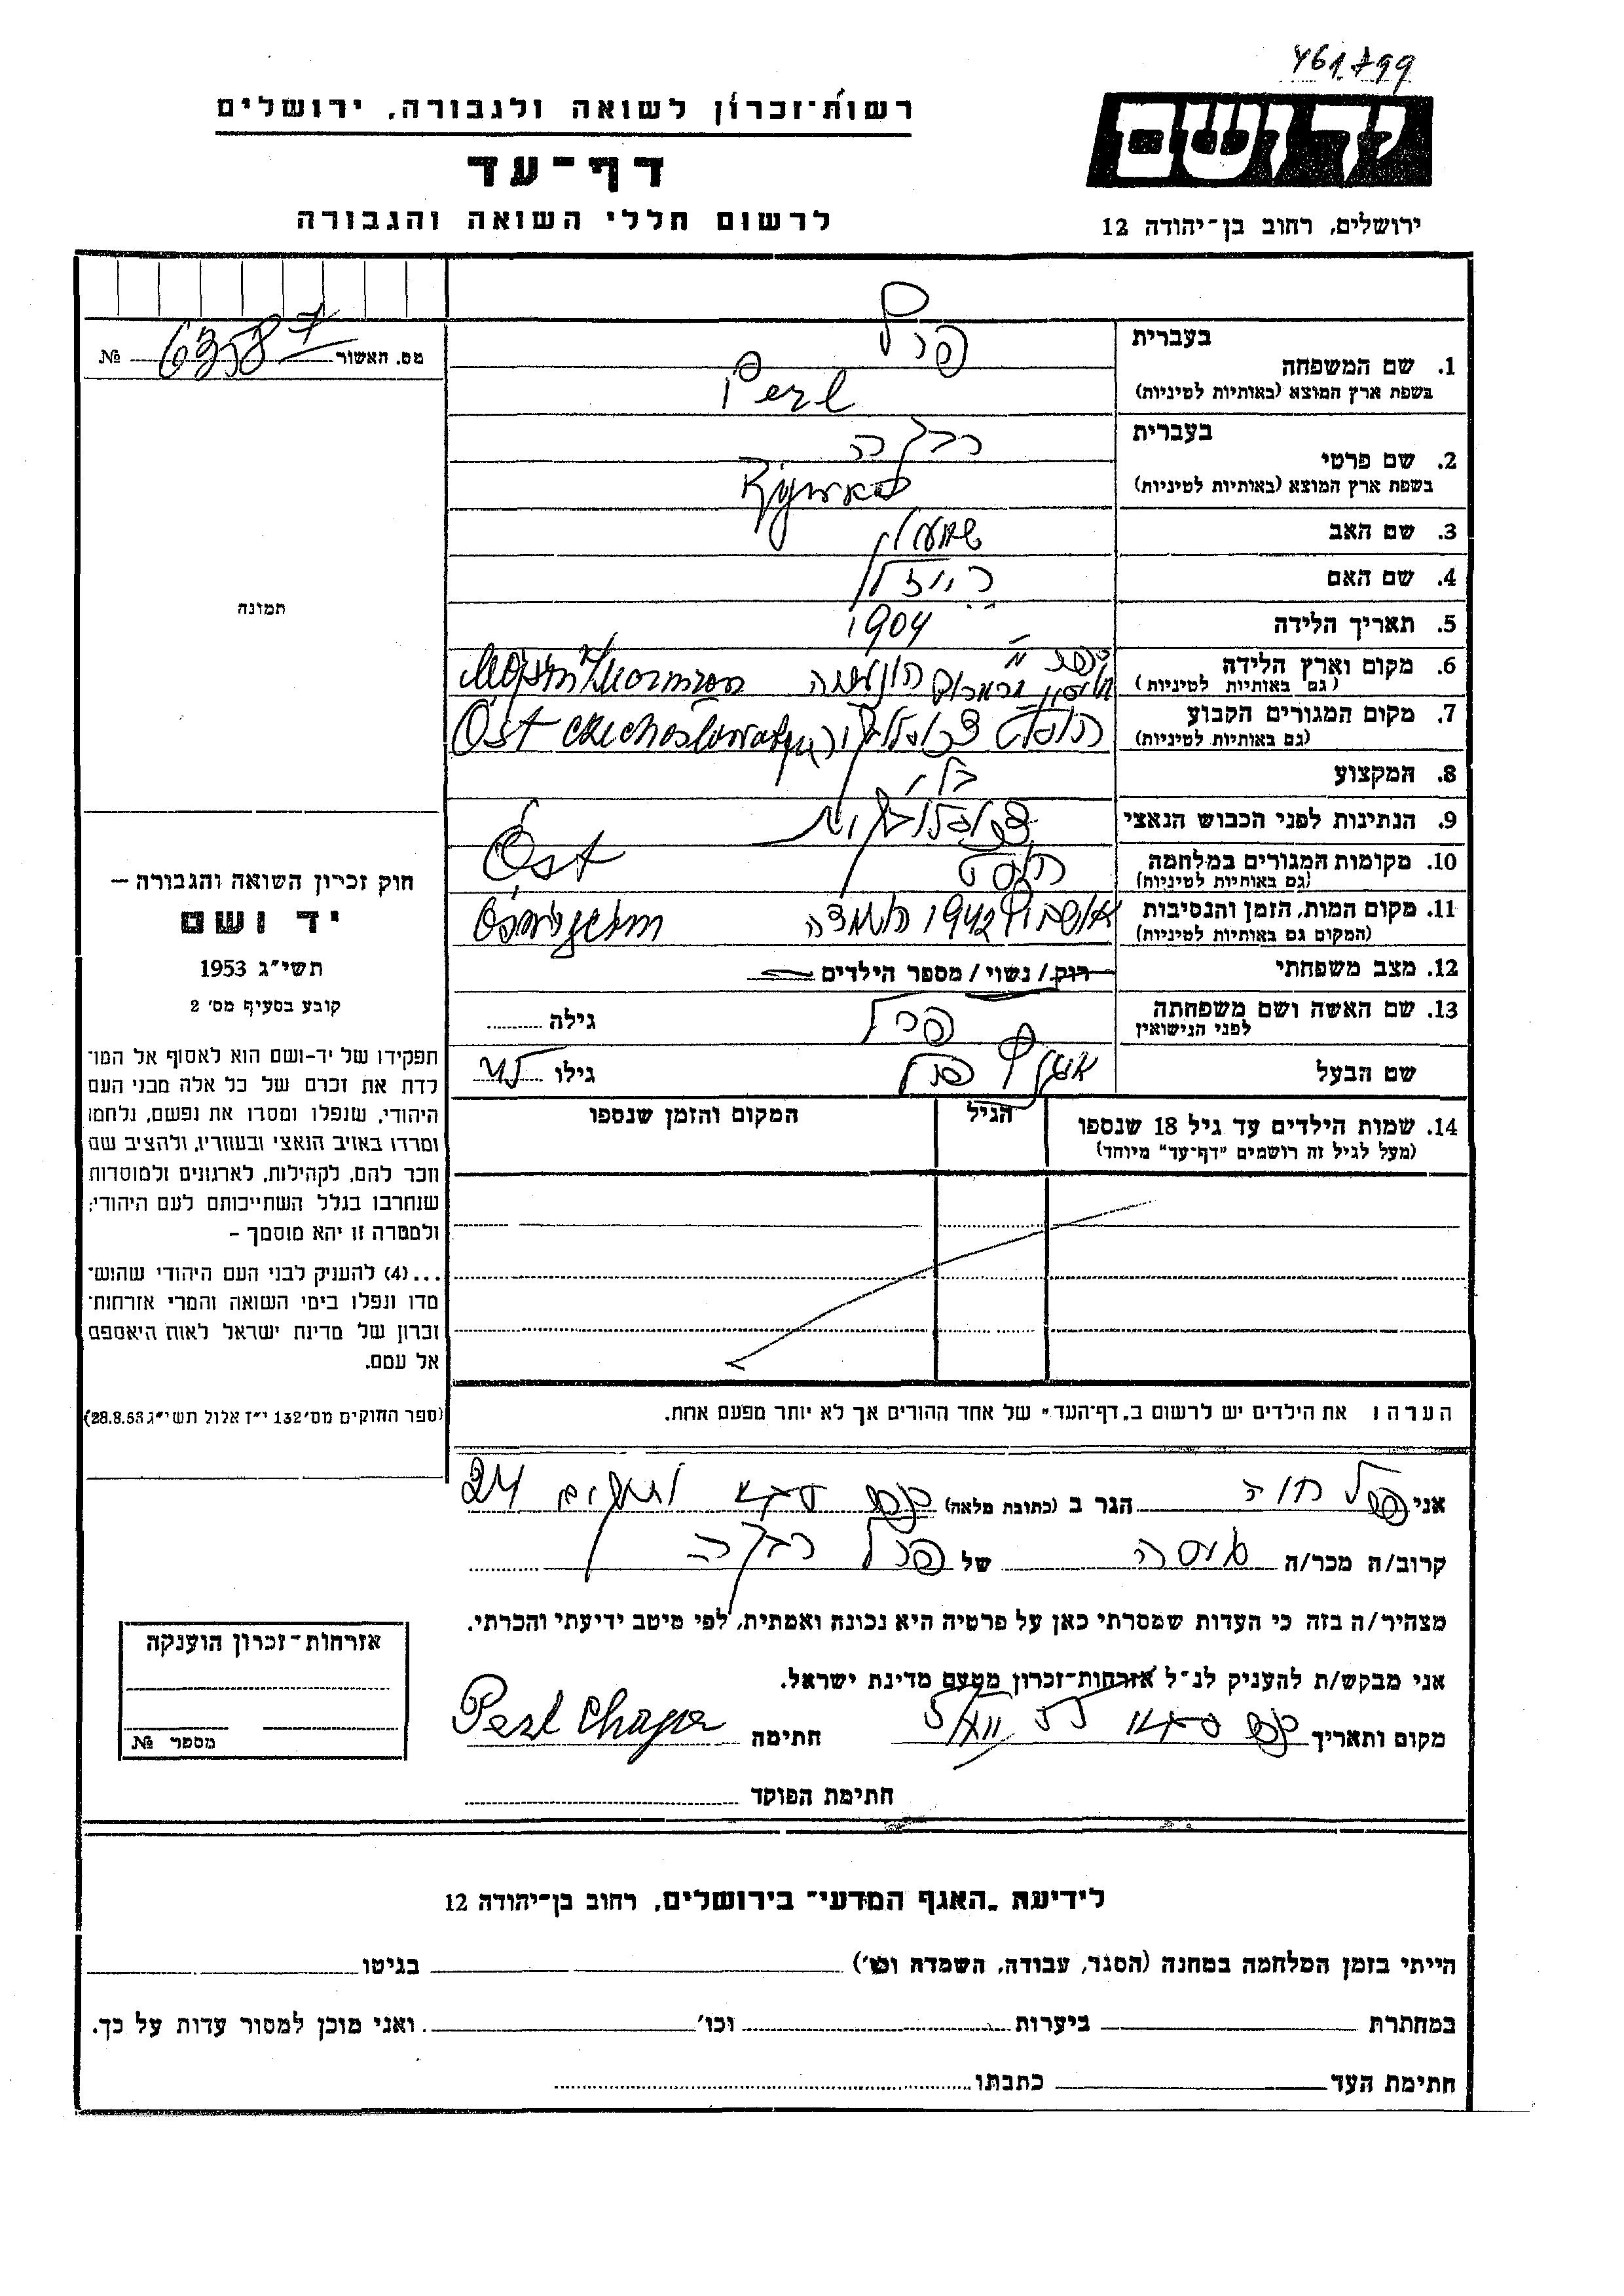 461799
רשות־זכרון לשואה ולגבורה, ירושלים
דף־עד
לרשום חללי השואה והגבורה
יד ושם
ירושלים, רחוב בן־יהודה 12
מס. האשור 63587 №
תמונה
חוק זכרון השואה והגבורה –
יד ושם
תשי״ג 1953
קובע בסעיף מס׳ 2
תפקידו של יד-ושם הוא לאסוף אל המו־
לדת את זכרם של כל אלה מבני העם
היהודי, שנפלו ומסרו את נפשם, נלחמו
ומרדו באויב הנאצי ובעוזריו, ולהציב שם
וזכר להם, לקהילות, לארגונים ולמוסדות
שנחרבו בגלל השתייכותם לעם היהודי;
ולמטרה זו יהא מוסמך –
...(4) להעניק לבני העם היהודי שהוש־
מדו ונפלו בימי השואה והמרי אזרחות־
זכרון של מדינת ישראל לאות היאספם
אל עמם.
(ספר החוקים מס׳ 132 י״ז אלול תשי״ג 28.8.53)
בעברית פרל
1. שם המשפחה
בשפת ארץ המוצא (באותיות לטיניות) Perl
בעברית רבקה
2. שם פרטי
בשפת ארץ המוצא (באותיות לטיניות)
3. שם האב שמעון
4. שם האם רייזל
5. תאריך הלידה 1904
6. מקום וארץ הלידה
(גם באותיות לטיניות)
7. מקום המגורים הקבוע Öst
(גם באותיות לטיניות)
8. המקצוע
9. הנתינות לפני הכבוש הנאצי
10. מקומות המגורים במלחמה Öst
(גם באותיות לטיניות)
11. מקום המות, הזמן והנסיבות 1942 הושמדה
(המקום גם באותיות לטיניות)
12. מצב משפחתי רוק / נשוי / מספר הילדים
13. שם האשה ושם משפחתה פרל גילה
לפני הנישואין
שם הבעל פרל גילו
14. שמות הילדים עד גיל 18 שנספו הגיל המקום והזמן שנספו
(מעל לגיל זה רושמים "דף־עד" מיוחד)
הערה ו את הילדים יש לרשום ב„דף־העד״ של אחד ההורים אך לא יותר מפעם אחת.
אני פרל חוה הגר ב (כתובת מלאה) 24
קרוב/ה מכר/ה גיסה של פרל רבקה
מצהיר/ה בזה כי העדות שמסרתי כאן על פרטיה היא נכונה ואמתית, לפי מיטב ידיעתי והכרתי.
אני מבקש/ת להעניק לנ״ל אזרחות־זכרון מטעם מדינת ישראל.
מקום ותאריך חתימה Perl Chaya
חתימת הפוקד
אזרחות־זכרון הוענקה
מספר №
לידיעת „האגף המדעי״ בירושלים, רחוב בן־יהודה 12
הייתי בזמן המלחמה במחנה (הסגר, עבודה, השמדה וכו׳) בגיטו
במחתרת ביערות וכו׳ ואני מוכן למסור עדות על כך.
חתימת העד כתבתו